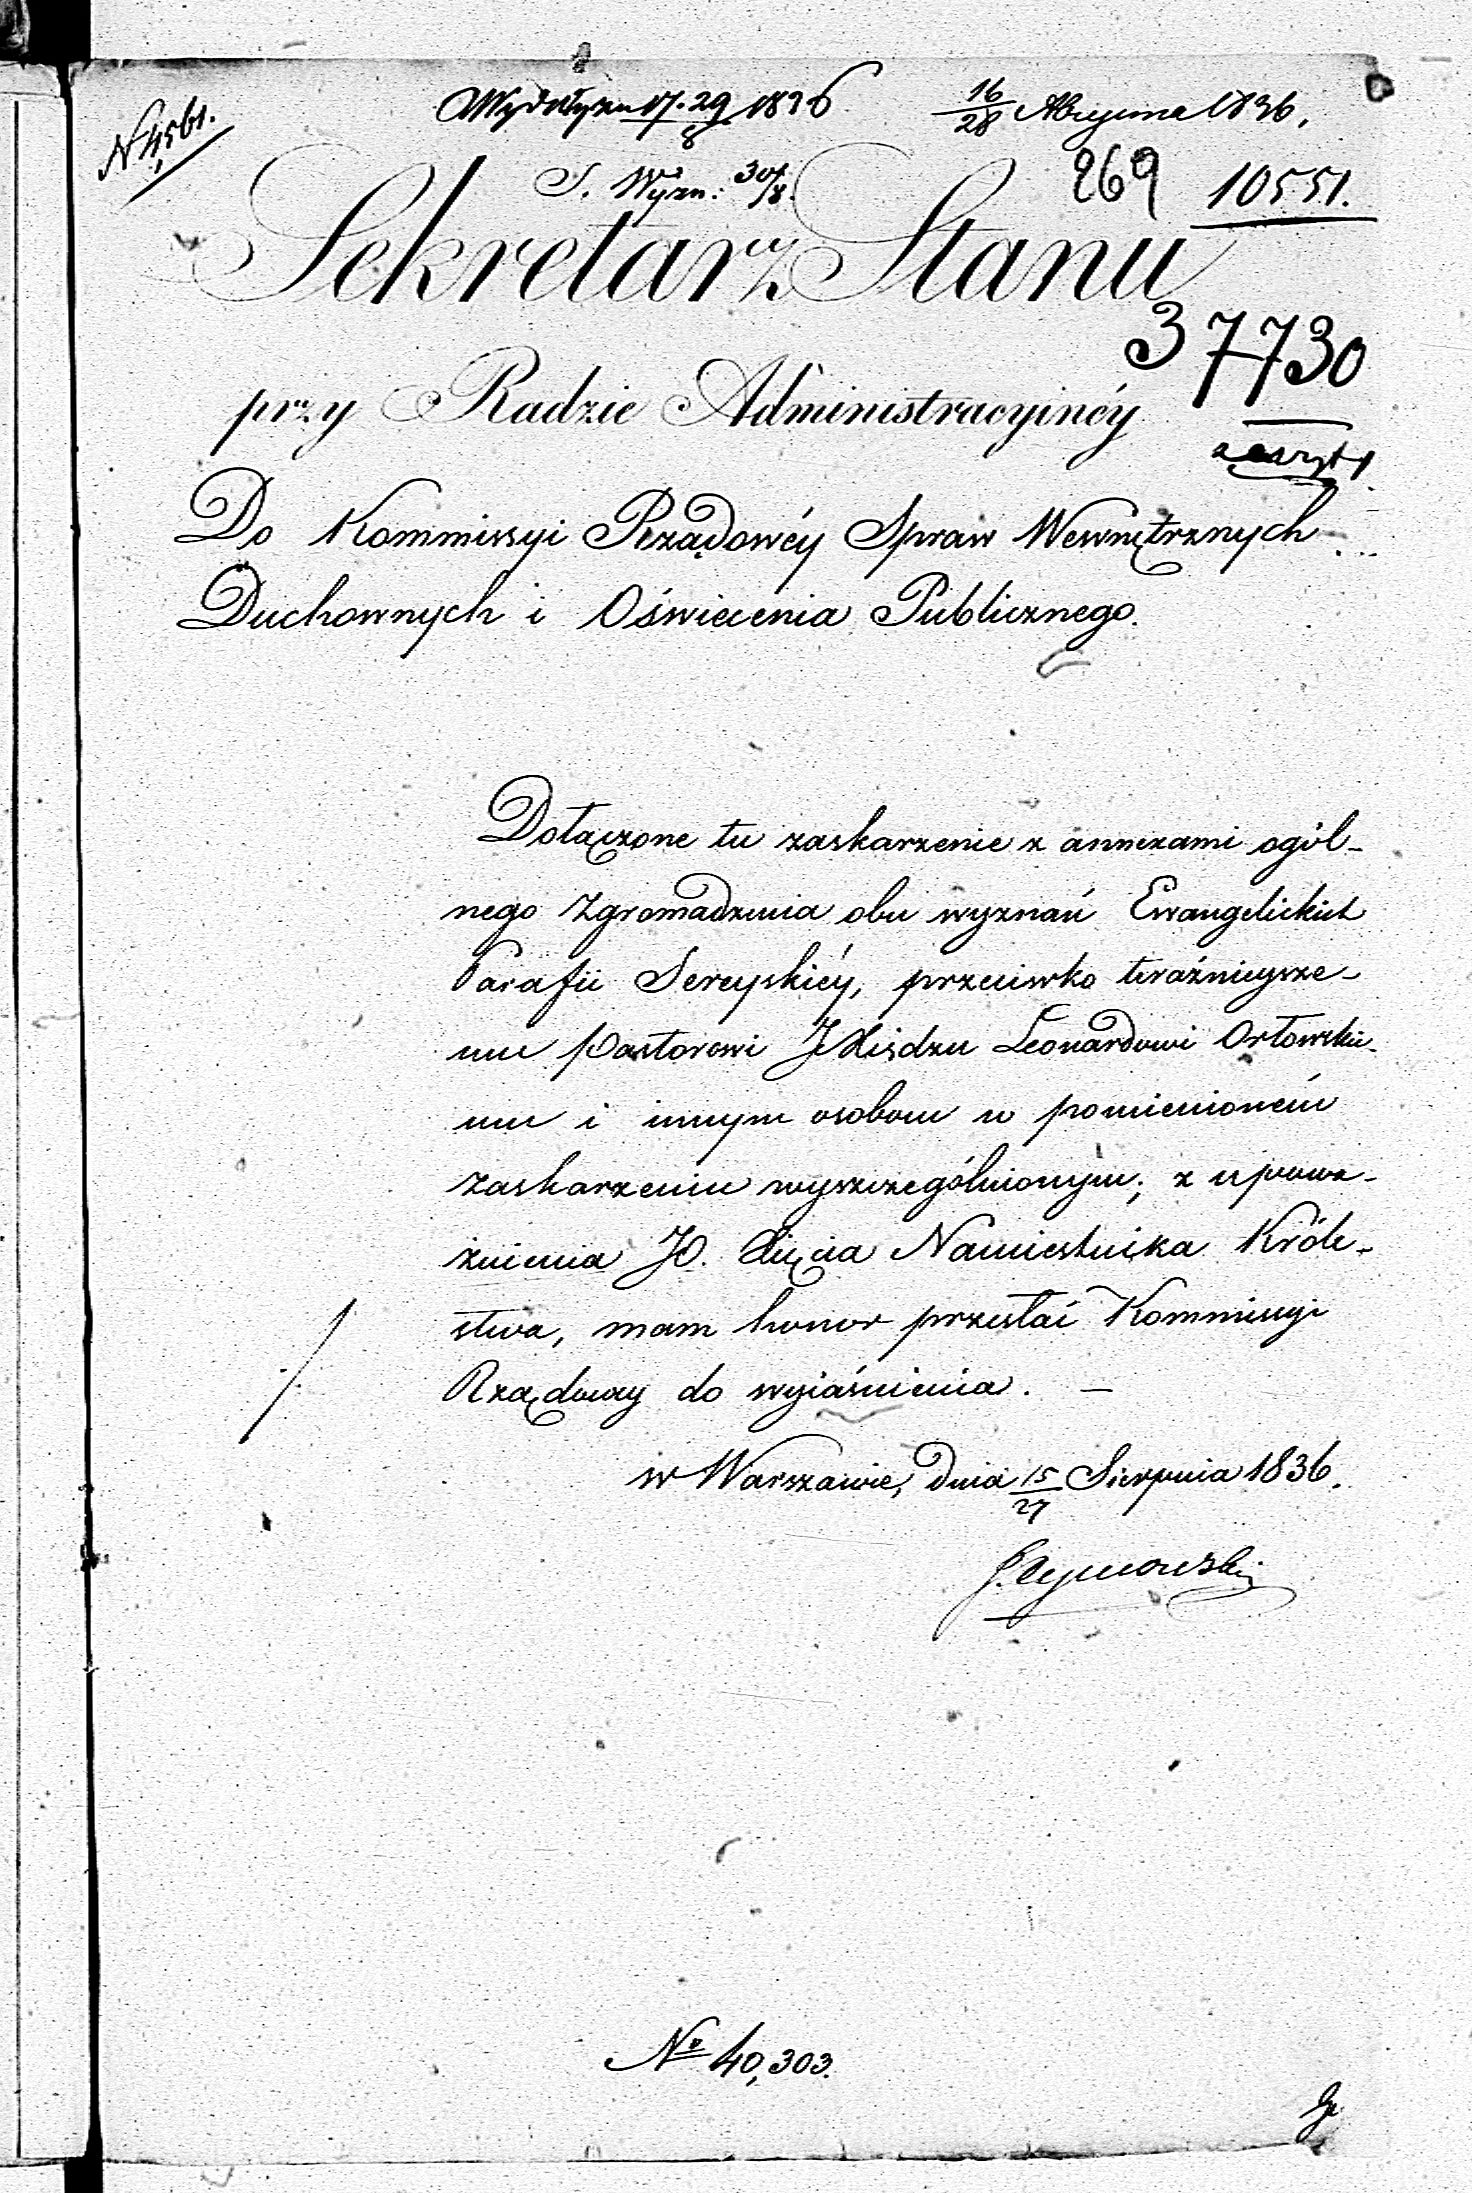 N 4561.
17. 29/8 1836
16/28 1836.
S. Wyzn: 30/8.
269 10551.
Sekretarz Stanu
37730
przy Radzie Administracyinéy
Do Kommissyi Rządowéy Spraw Wewnętrznych
Duchownych i Oświecenia Publicznego.
Dołączone tu zaskarzenie z annexami ogól-
nego Zgromadzenia obu wyznań Ewangelickich
Parafii Sereyskiéy, przeciwko teraźnieysze-
mu Pastorowi JXiędzu Leonardowi Orłowskie-
mu i innym osobom w pomienioném
zaskarzeniu wyszczególnionym; z upowa-
żnienia JO. Xięcia Namiestnika Króle-
stwa, mam honor przesłać Kommissyi
Rządowey do wyiaśnienia. —
w Warszawie, dnia 15/27 Sierpnia 1836.
J. Tymowski
Nº 40,303.